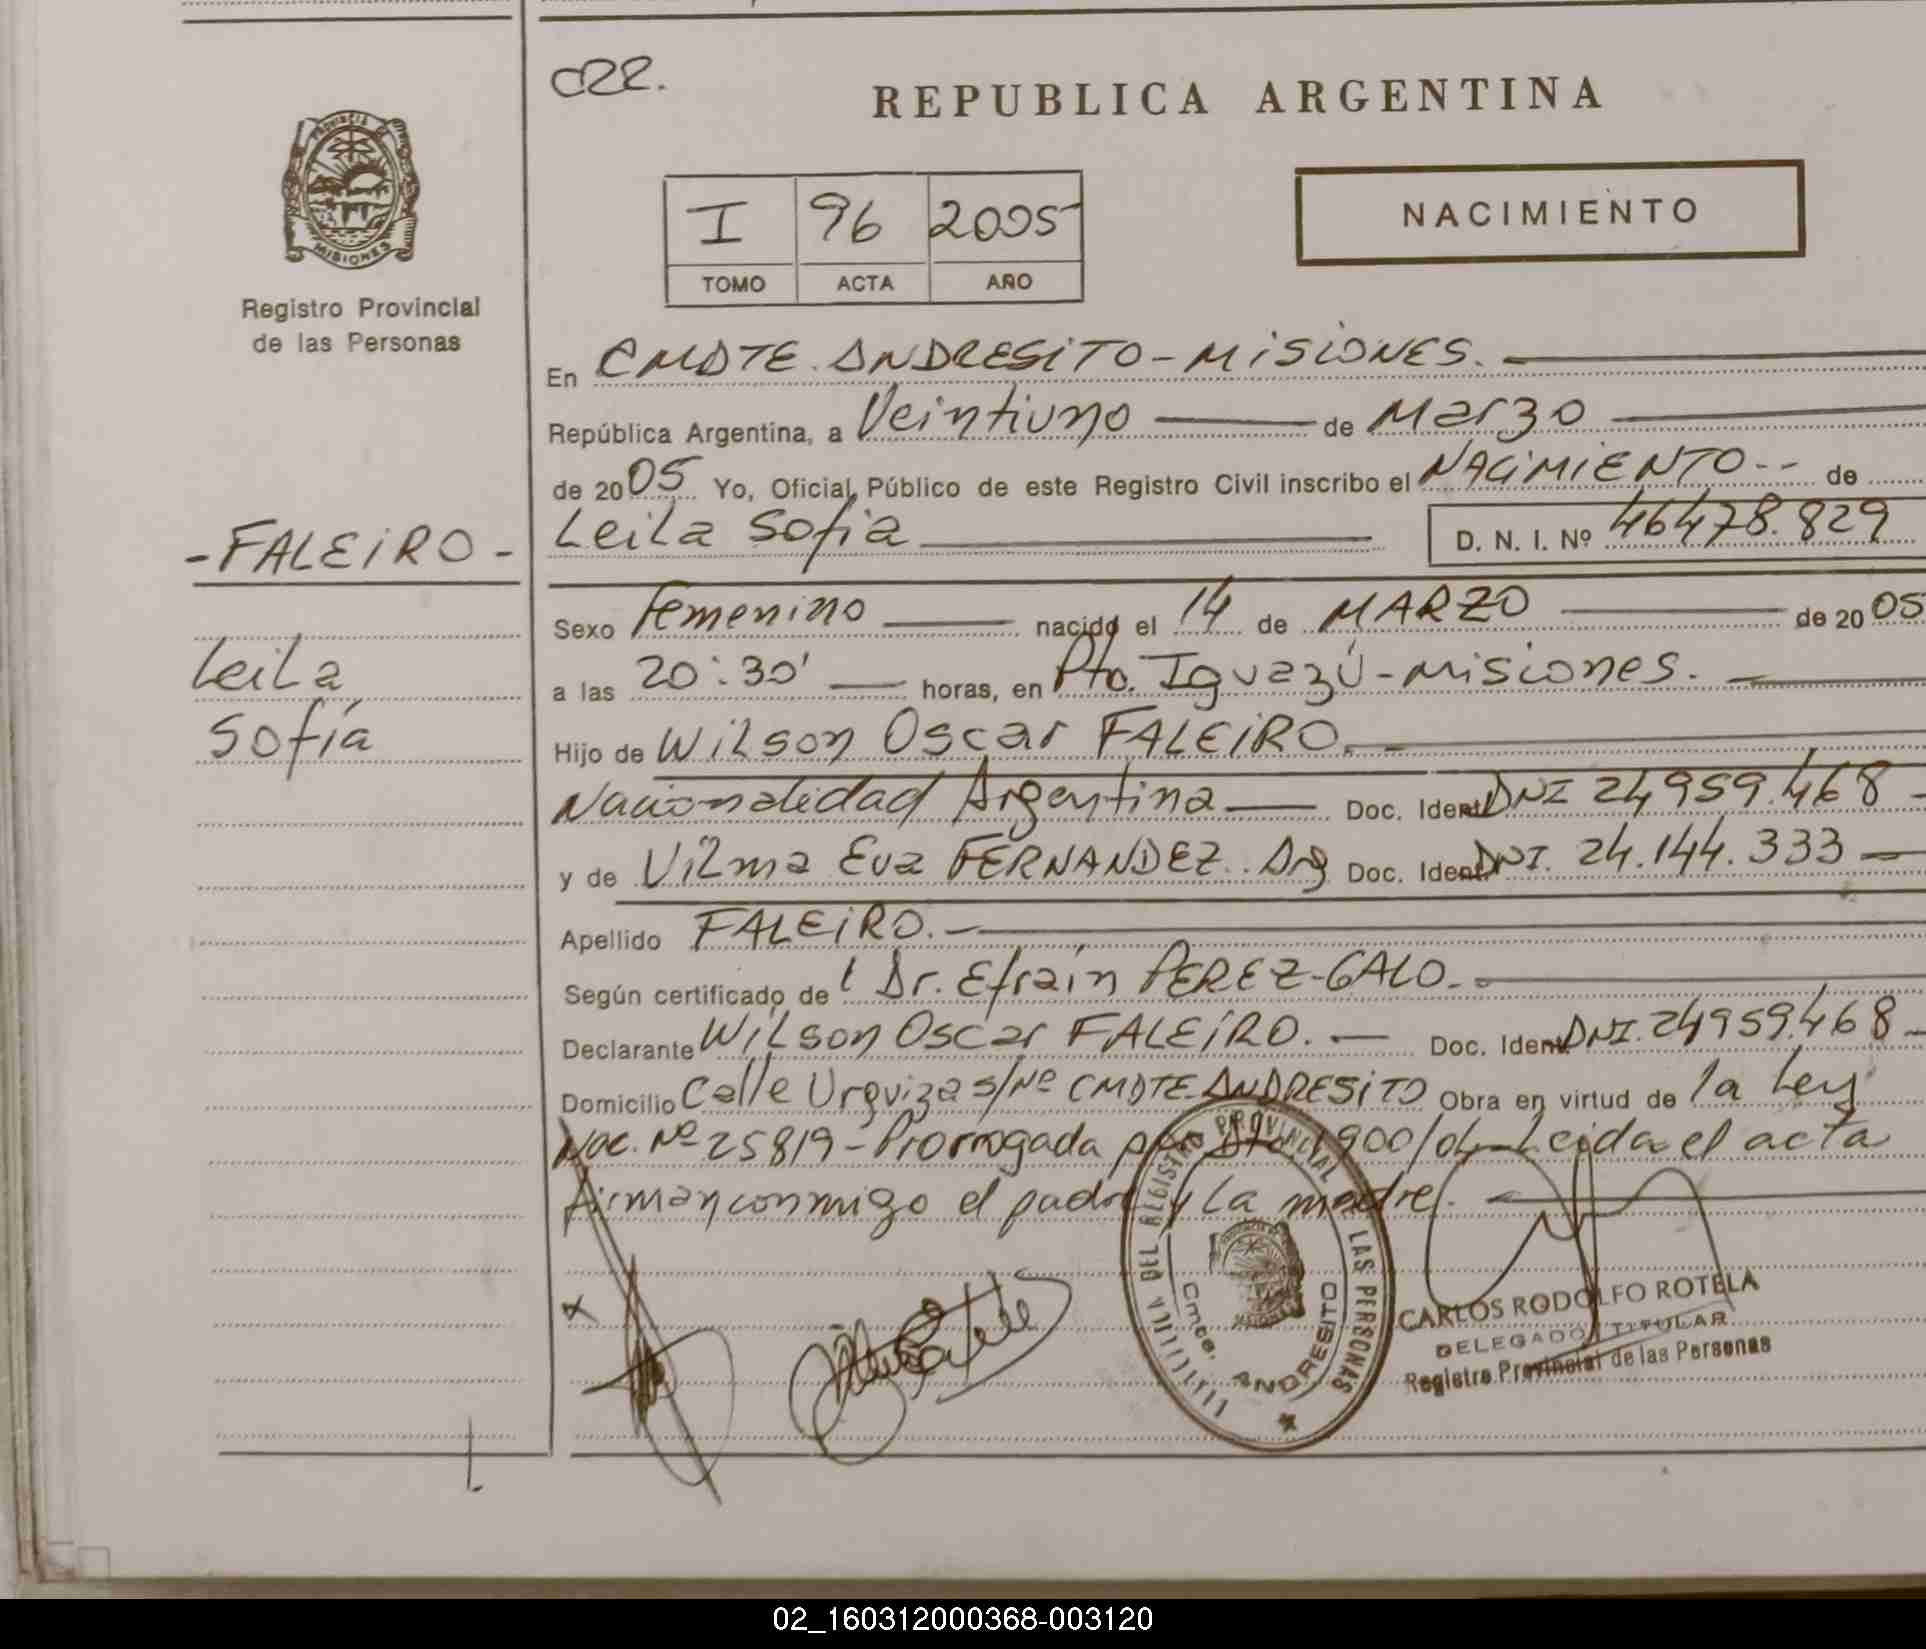 C22.
REPUBLICA ARGENTINA
PROVINCIA DE
MISIONES
I 96 2005
TOMO ACTA AÑO
NACIMIENTO
Registro Provincial
de las Personas
En CMDTE. ANDRESITO - MISIONES.
República Argentina, a Veintiuno de Marzo
de 2005 Yo, Oficial Público de este Registro Civil inscribo el NACIMIENTO-- de
- FALEIRO -
Leila Sofia D. N. I. Nº 46478.829
Sexo Femenino nacido el 14 de MARZO de 2005
Leila
a las 20:30' horas, en Pto. Iguazú - Misiones.
Sofía
Hijo de Wilson Oscar FALEIRO.
Nacionalidad Argentina Doc. Ident. DNI 24959.468
y de Vilma Eva FERNANDEZ.. Arg Doc. Ident. DNI. 24.144.333
Apellido FALEIRO.
Según certificado de Dr. Efraín PEREZ-GALO.
Declarante Wilson Oscar FALEIRO. Doc. Ident. DNI. 24959.468
Domicilio Calle Urquiza s/Nº CMDTE. ANDRESITO Obra en virtud de la Ley
Nac. Nº 25819 - Prorrogada por Dto 1900/04 - Leida el acta
firman conmigo el padre y La madre.
PROVINCIAL
DEL REGISTRO
LAS PERSONAS
Cmte. ANDRESITO
CARLOS RODOLFO ROTELA
DELEGADO TITULAR
Registro Provincial de las Personas
02_160312000368-003120